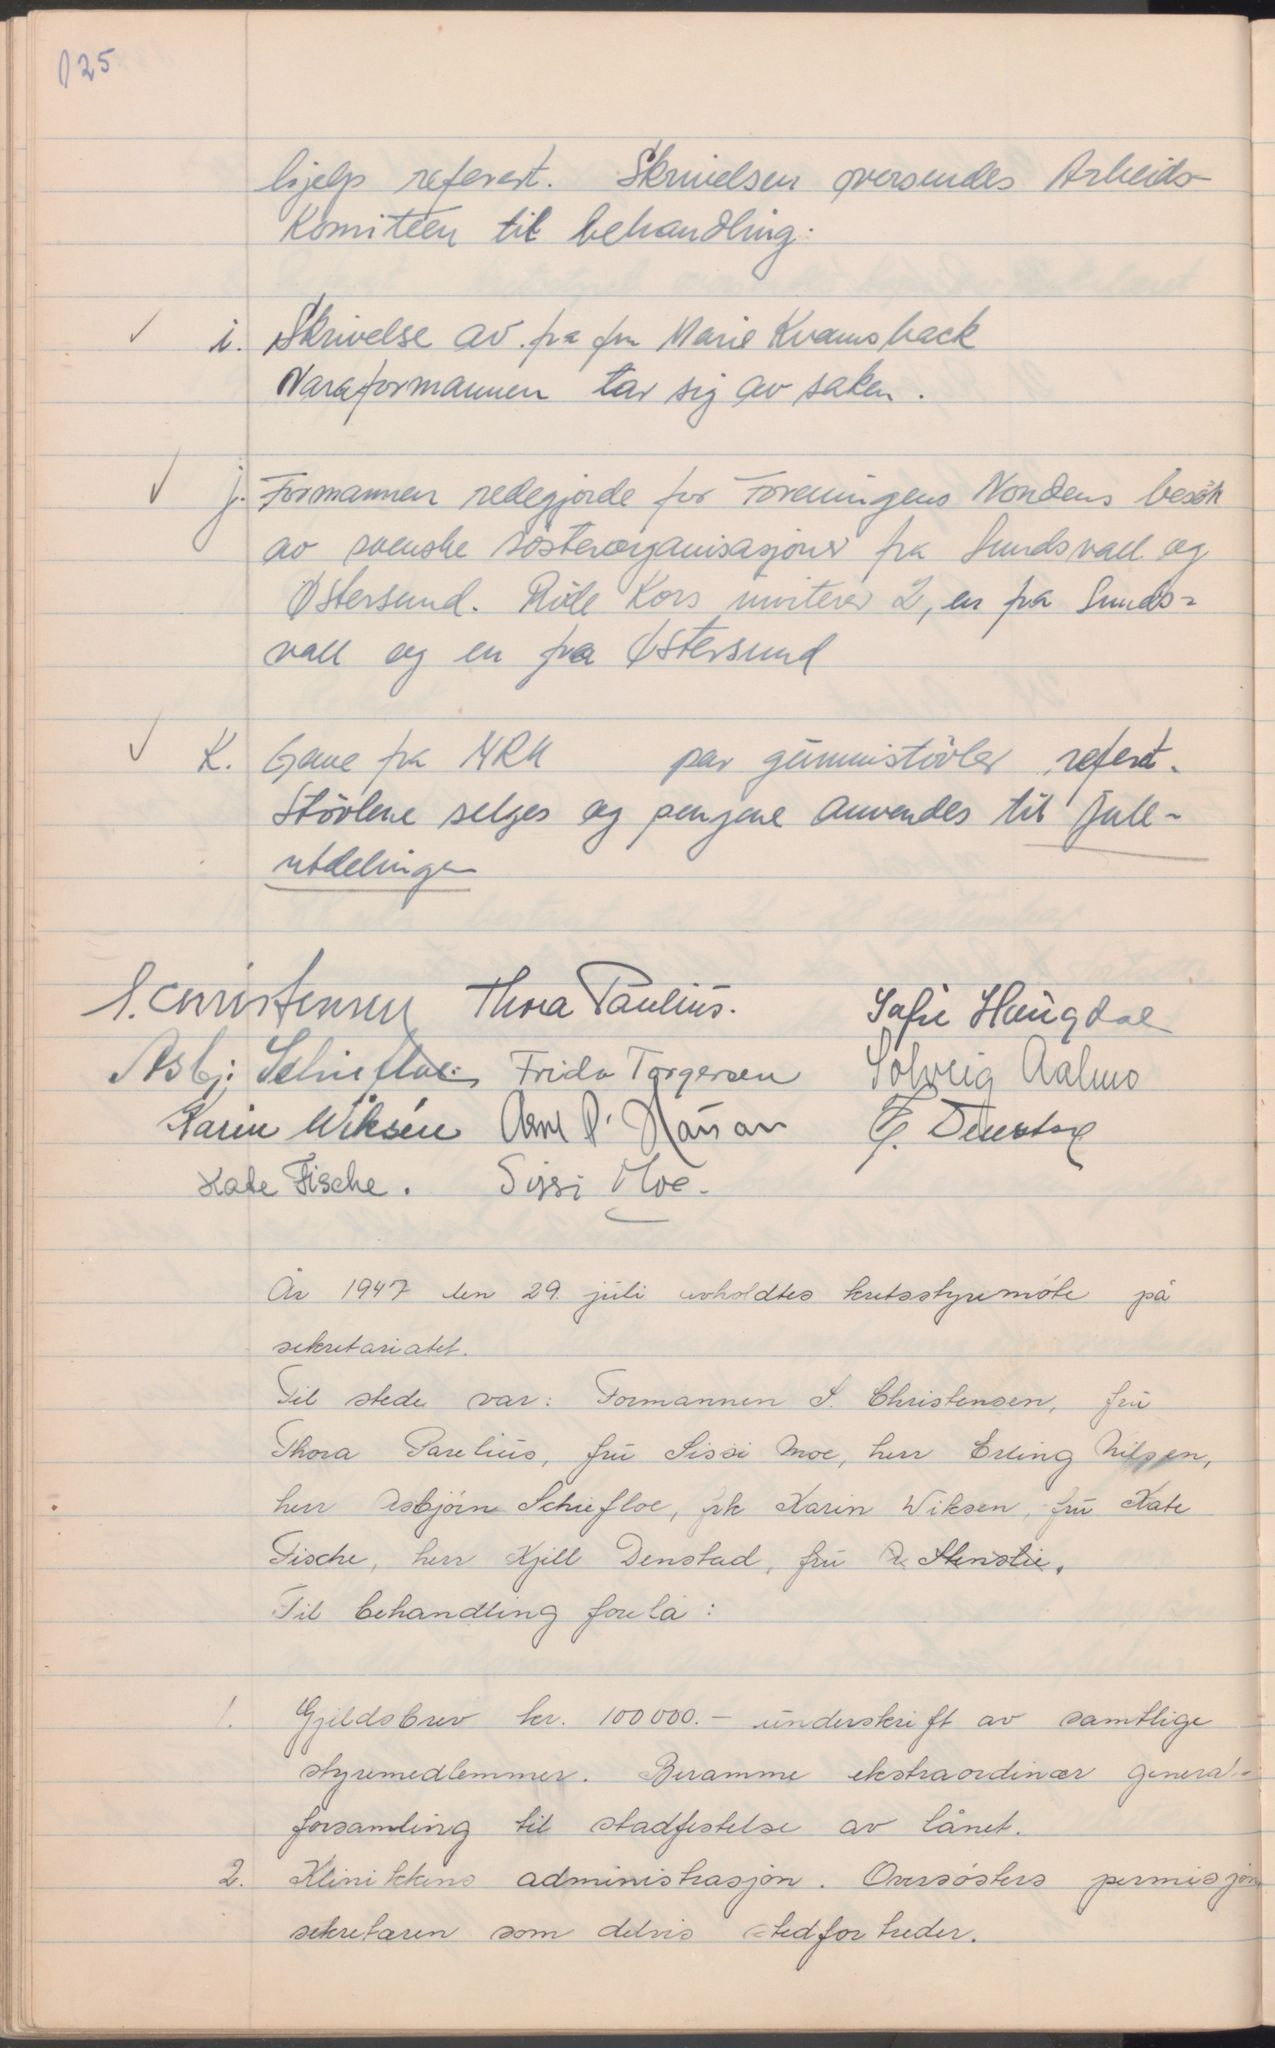 125
hjelp referert. Skrivelsen oversendes Arbeids-
Komiteen til behandling.
✓ i. Skrivelse av. fra fru Marie Kvamsback
Varaformannen tar sig av saken.
✓ j. Formannen redegjorde for Foreningens Nordens besök
av svenske sösterorganisasjoner fra Sundsvall og
Østersund. Röde Kors inviterer 2, en fra Sunds=
vall og en fra Østersund
✓ K. Gave fra NRK par gummistövler refert.
Stövlene selges og pengene anvendes til Jule-
utdelingen
S. Christensen Thora Paulius. Sofie Haugdal
Asbj. Schiefloe. Frida Torgersen Solveig Aalmo
Karin Wiksén Arne P. E. Denstad
Kate Fische. Sissi Moe.
År 1947 den 29. juli avholdtes kretsstyremöte på
sekretariatet.
Til stede var: Formannen S. Christensen, frú
Thora Parelius, frú Sissi Moe, herr Erling Nilsen,
herr Asbjörn Schiefloe, frk Karin Wiksen, frú Kate
Fische, herr Kjell Denstad, frú Stenslie.
Til behandling forelå:
1. Gjeldsbrev kr. 100 000.- underskrift av samtlige
styremedlemmer. Beramme ekstraordinær general-
forsamling til stadfestelse av lånet.
2. Klinikkens administrasjon. Oversösters permisjon
sekretæren som delvis stedfortreder.